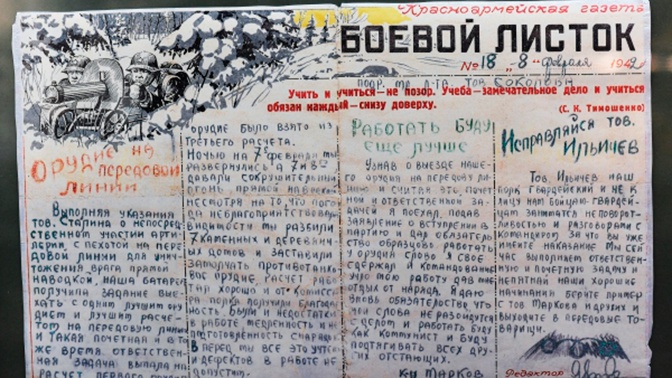 Красноармейская газета
БОЕВОЙ ЛИСТОК
№ 18 "8" февраля 1942
подр. мл. л-та тов. Соколова
Учить и учиться — не позор. Учеба — замечательное дело и учиться
обязан каждый — снизу доверху.
(С. К. Тимошенко)
Орудие на
передовой
линии
Выполняя указания
тов. Сталина о непосред-
ственном участии арти-
лерии, с пехотой на пере-
довой линии для унич-
тожения врага прямой
наводкой, наша батарея
получила задание вые-
хать с одним лучшим ору-
дием и лучшим расче-
том на передовую линию
и такая почетная и в то
же время ответствен-
ная задача выпала на
расчет первого
орудие было взято из
третьего расчета.
Ночью на 7 февраля мы
развернулись а 7 и 8-го
давали сокрушительный
огонь прямой наводкой
несмотря на то, что пого-
да неблагоприятствовала
видимости мы разбили
7 каменных и деревянн-
ых домов и заставили
замолчать противотанко-
вое орудие, расчет рабо-
тал хорошо и от комисса-
ра полка получили благода-
ность. Были и недостатки
в работе медленность и не-
подготовленность снарядов
в перед мы все это учтем
и дефектов в работе не
допустим.
Работать буду
еще лучше
Узнав о выезде наше-
го орудия на передовую ли-
нию и считая это, почетной
и ответственной за-
дачей я поехал, подав
заявление о вступлении в
партию и дар обязатель-
ство образцово работать
у орудий слово я свое
сдержал и командование
за мою работу дав мне
отдых от наряда. Я даю
вновь обязательство что
мои слова не разойдутся
с делом и работать буду
как коммунист и буду
подтягивать всех дру-
гих отстающих.
к-ц Марков
Исправляйся тов.
Ильичев
Тов. Ильичев наш
полк гвардейский и не к
лицу нам бойцам-гвардей-
цам заниматся неповорот-
ливостью и разговорами с
командиром. За что вы уже
имеите наказание Мы сей-
час выполняем ответствен-
ную и почетную задачу и
непятнай наши хорошие
начинания берите пример
с тов Маркова и других и
выходите в передовые то-
варищи.
Редактор